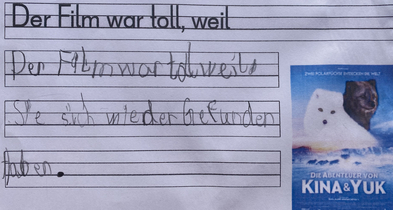 Der Film war toll, weil
Der Film war tol weil
Sie sich wieder Gefunden
haben.
DIE ABENTEUER VON
KINA & YUK